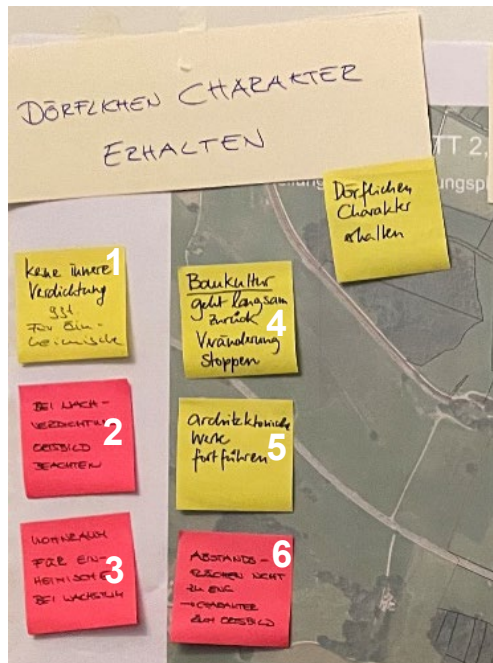 DÖRFLICHEN CHARAKTER
ERHALTEN
TT 2,
ungspl
Dörflichen
Charakter
erhalten
1
keine innere
Verdichtung
ggf.
Für Ein-
heimische
Baukultur
geht langsam
zurück
4
Veränderung
Stoppen
BEI NACH-
VERDICHTUNG
2
ORTSBILD
BEACHTEN
architektonische
Werte
5
fortführen
WOHNRAUM
FÜR EIN-
HEIMISCHE
3
BEI WACHSTUM
6
ABSTANDS-
FLÄCHEN NICHT
ZU ENG
→ CHARAKTER
ZUM ORTSBILD